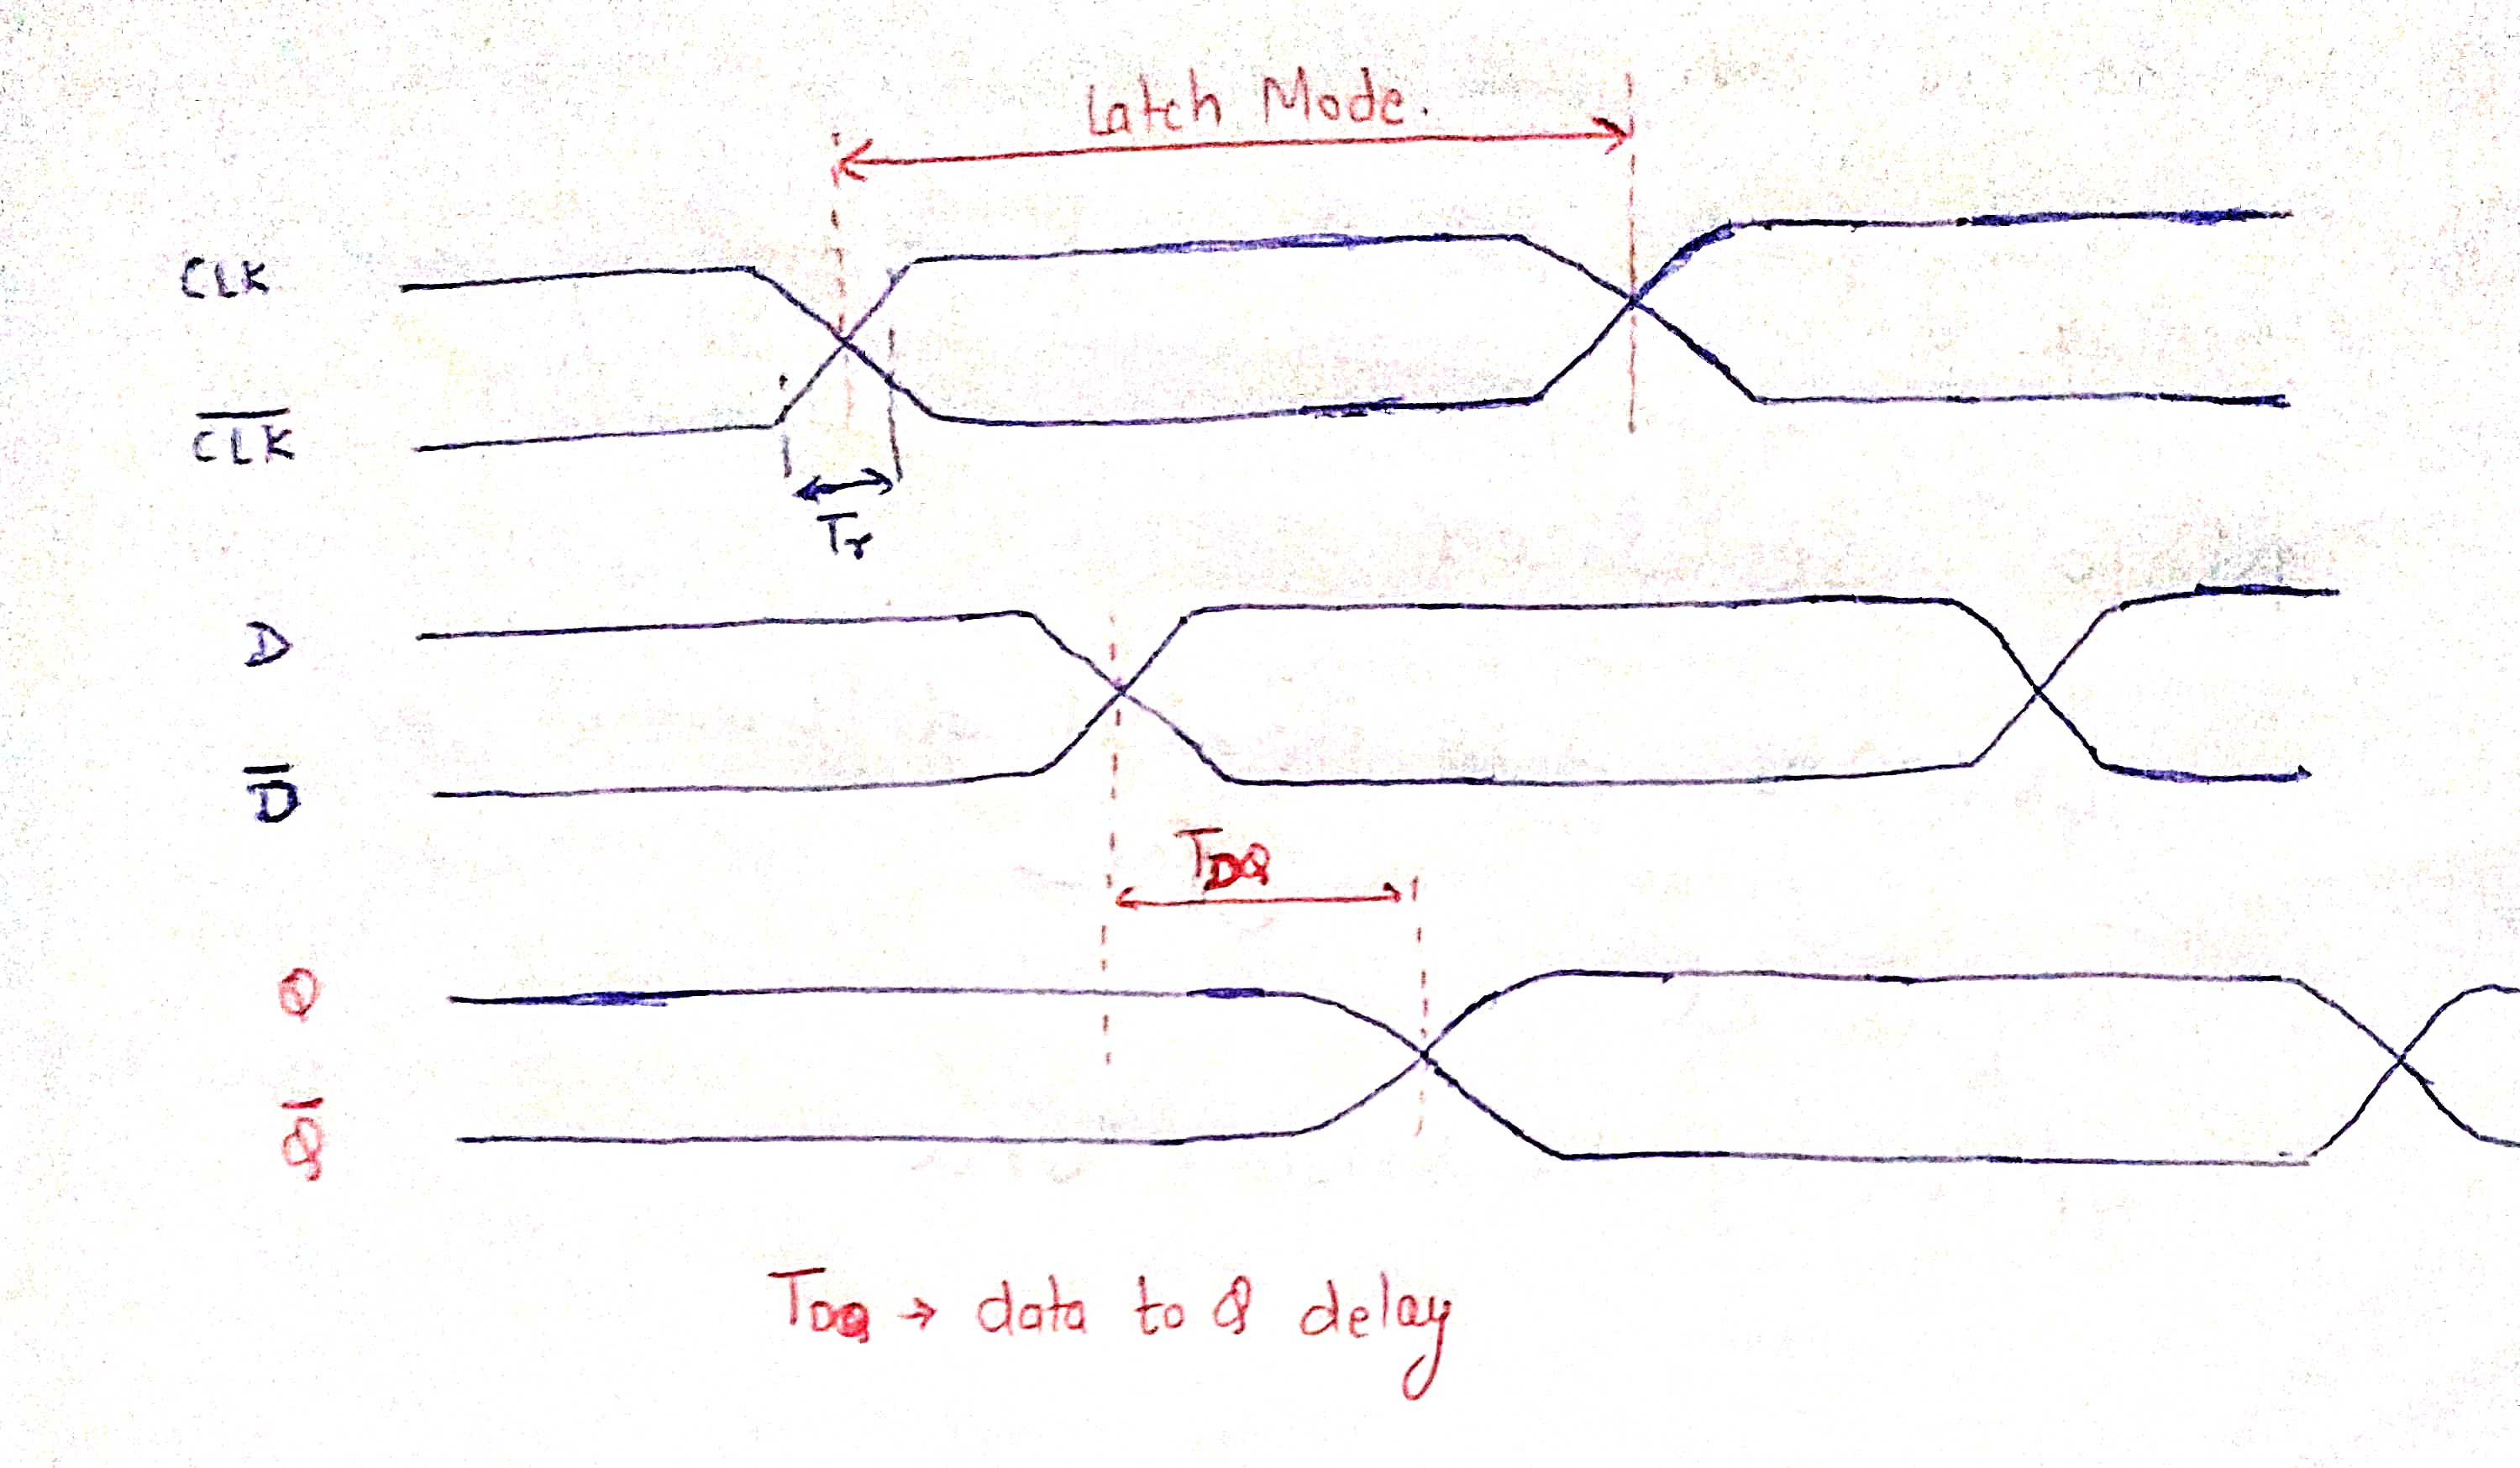 Latch Mode.
CLK
C̅L̅K̅
Tr
D
D̅
TDQ
Q
Q̅
TDQ → data to Q delay